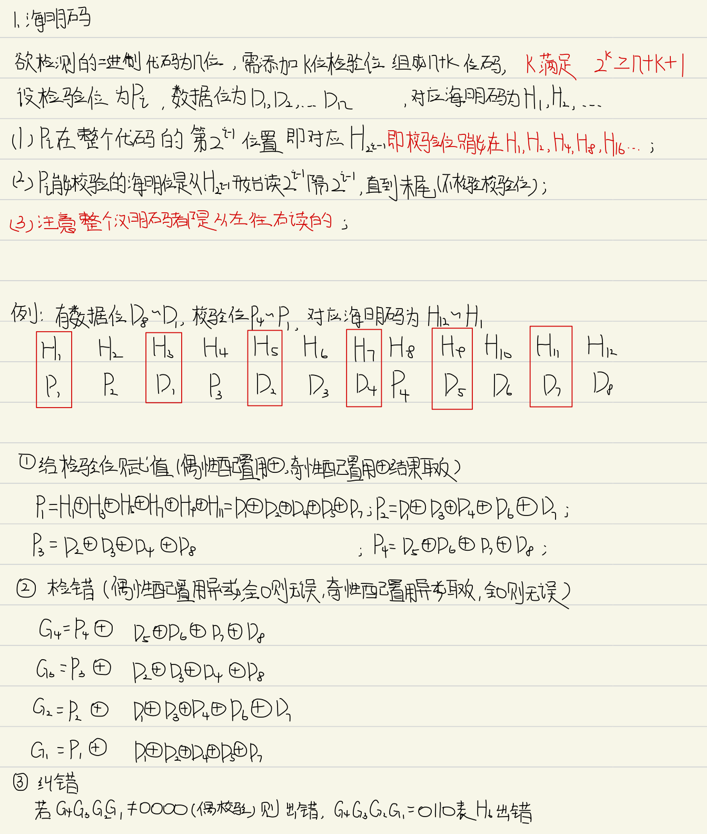 1.海明码
欲检测的二进制代码为n位，需添加k位检验位 组成n+k位码， k满足 2^k≥n+k+1
设检验位为Pi，数据位为D1,D2,…Dn ，对应海明码为H1,H2,…
(1) Pi在整个代码的第2^{i-1}位置 即对应H_{2^{i-1}} 即校验位只能在H1,H2,H4,H8,H16…；
(2) Pi能校验的海明位是从H_{2^{i-1}}开始读2^{i-1}隔2^{i-1}，直到末尾(不检验校验位)；
(3) 注意整个汉明码都是从左往右读的；
例：有数据位D8~D1，校验位P4~P1，对应海明码为H12~H1
H1 H2 H3 H4 H5 H6 H7 H8 H9 H10 H11 H12
P1 P2 D1 P3 D2 D3 D4 P4 D5 D6 D7 D8
①给检验位赋值(偶性配置用⊕,奇性配置用⊕结果取反)
P1=H1⊕H3⊕H5⊕H7⊕H9⊕H11=D1⊕D2⊕D4⊕D5⊕D7；P2=D1⊕D3⊕D4⊕D6⊕D7；
P3=D2⊕D3⊕D4⊕D8 ；P4=D5⊕D6⊕D7⊕D8；
② 检错(偶性配置用异或,全0则无误,奇性配置用异或取反,全0则无误)
G4=P4⊕ D5⊕D6⊕D7⊕D8
G3=P3⊕ D2⊕D3⊕D4⊕D8
G2=P2⊕ D1⊕D3⊕D4⊕D6⊕D7
G1=P1⊕ D1⊕D2⊕D4⊕D5⊕D7
③ 纠错
若G4G3G2G1≠0000(偶校验)则出错，G4G3G2G1=0110表H6出错